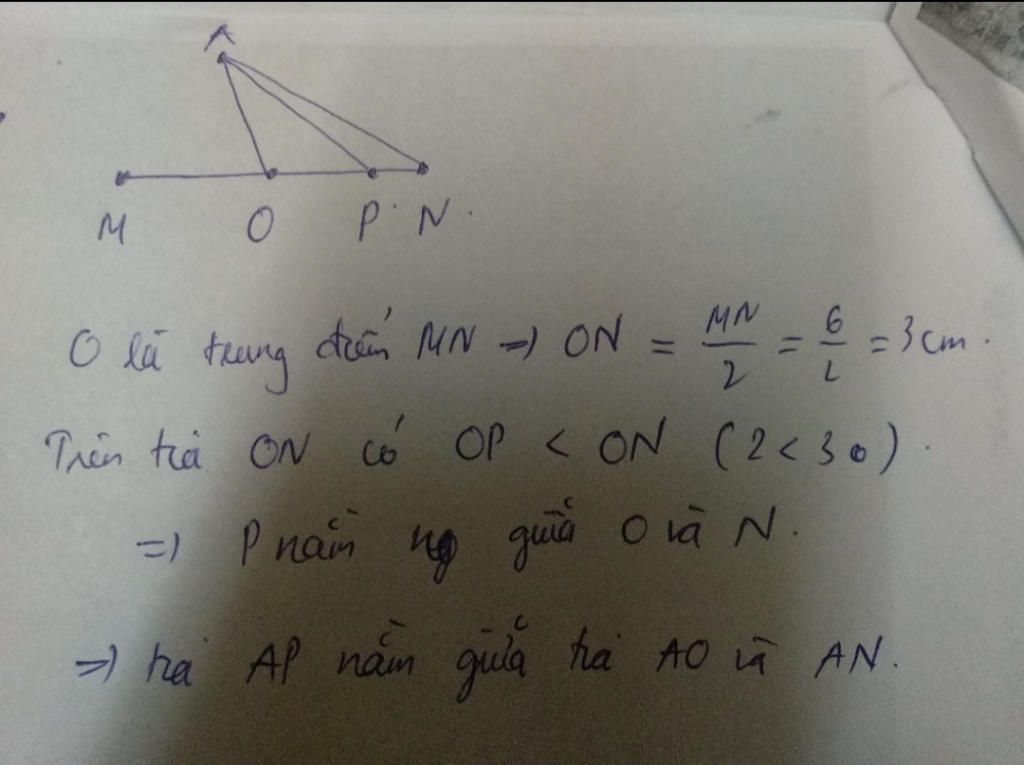 A
M O P N
O là trung điểm MN => ON = MN/2 = 6/2 = 3cm.
Trên tia ON có OP < ON (2 < 3).
=> P nằm giữa O và N.
=> tia AP nằm giữa tia AO và AN.